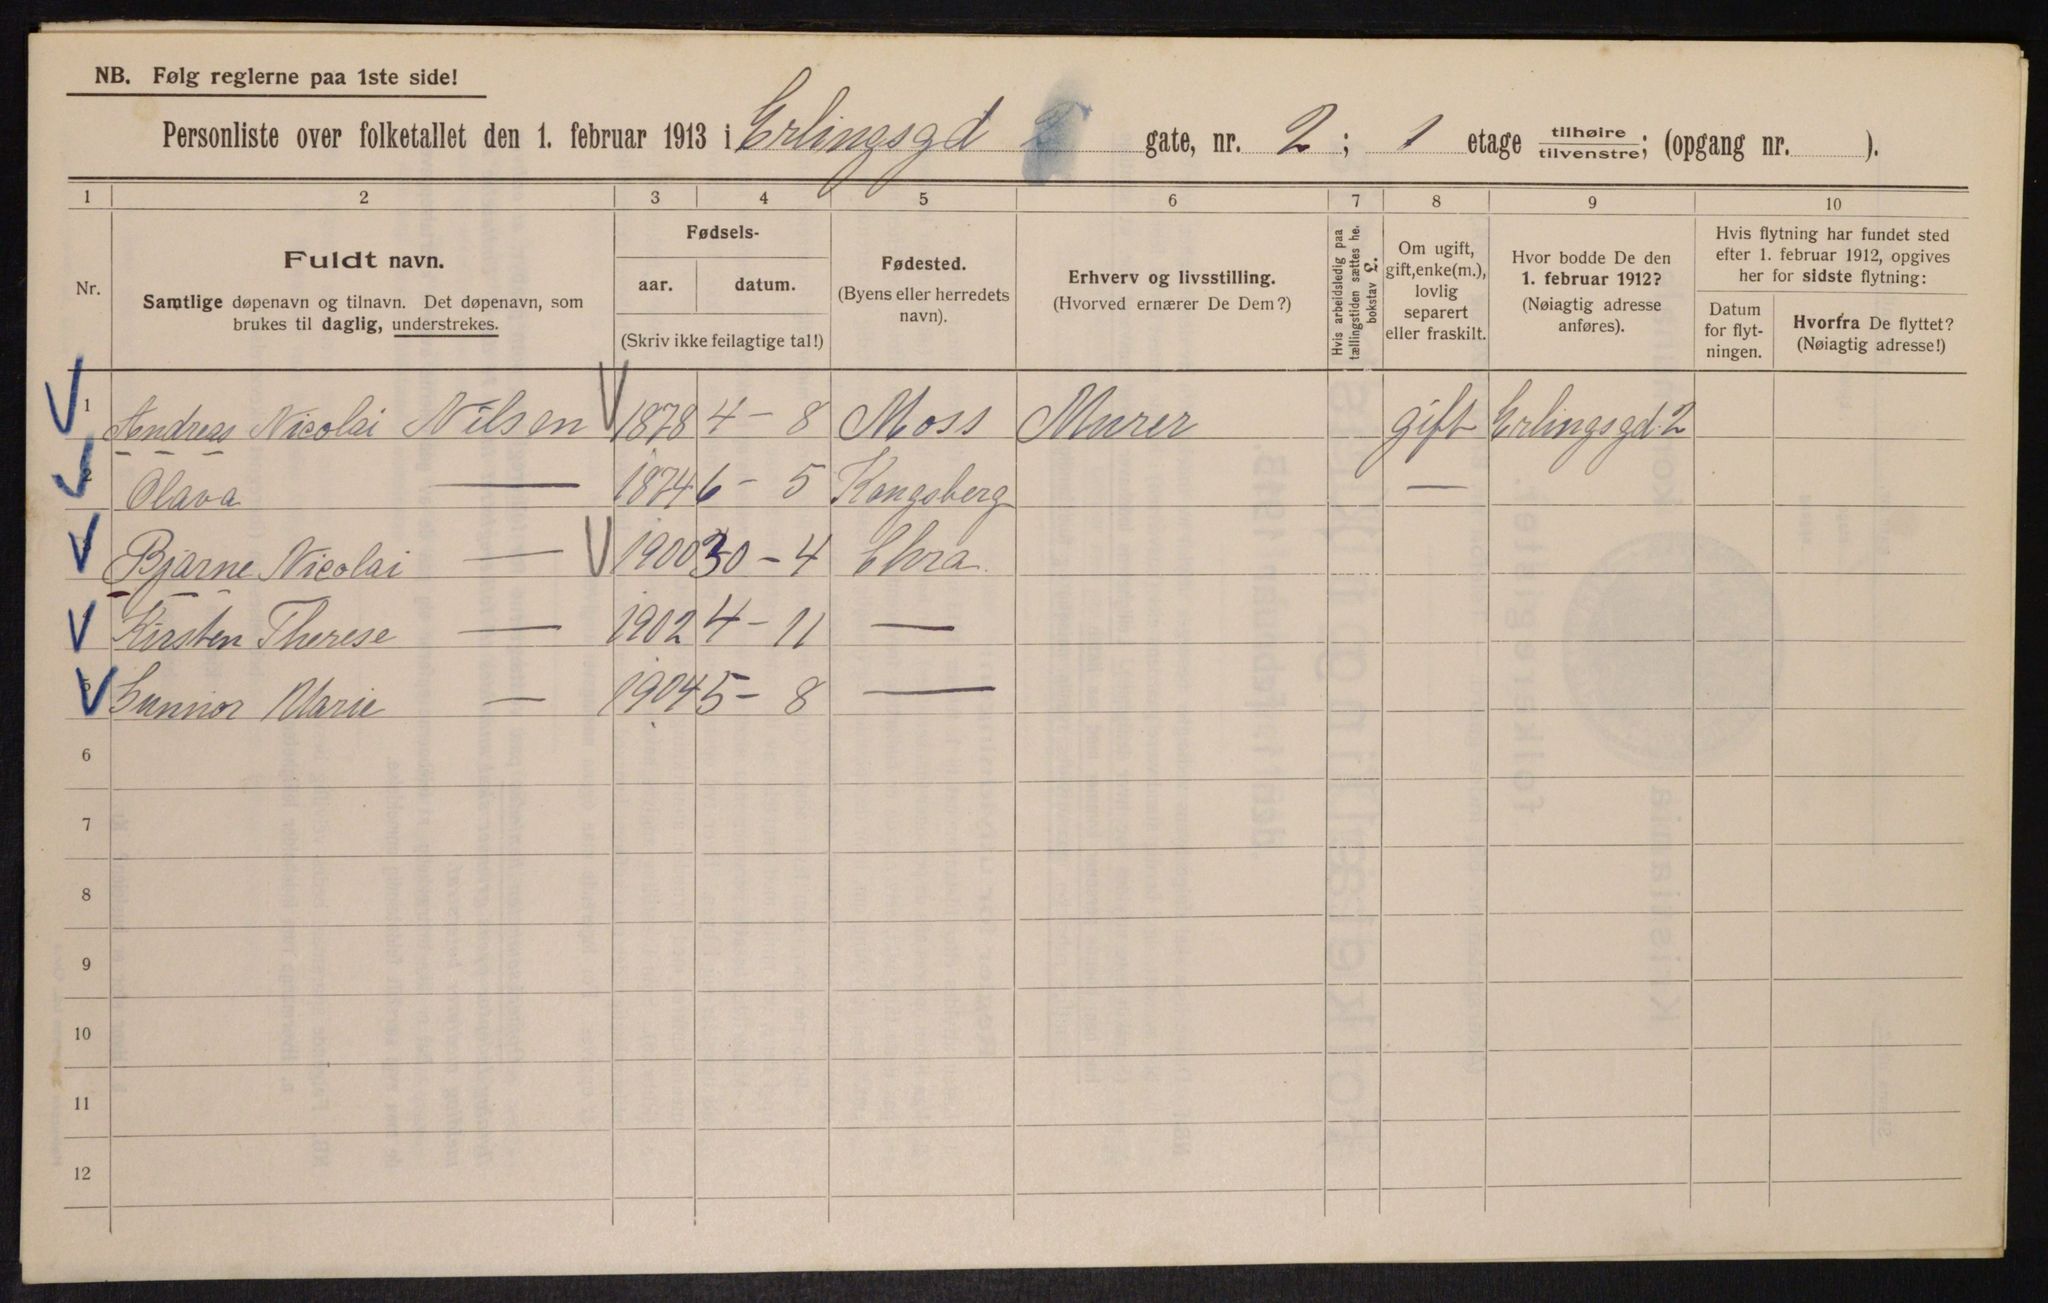 NB. Følg reglerne paa 1ste side!
Personliste over folketallet den 1. februar 1913 i Erlingsgd gate, nr. 2; 1 etage tilhøire tilvenstre; (opgang nr. ).
1 2 3 4 5 6 7 8 9 10
Nr.
Fuldt navn.
Samtlige døpenavn og tilnavn. Det døpenavn, som
brukes til daglig, understrekes.
Fødsels-
aar. datum.
(Skriv ikke feilagtige tal!)
Fødested.
(Byens eller herredets
navn).
Erhverv og livsstilling.
(Hvorved ernærer De Dem?)
Hvis arbeidsledig paa
tællingstiden sættes he.
bokstav L.
Om ugift,
gift, enke(m.),
lovlig
separert
eller fraskilt.
Hvor bodde De den
1. februar 1912?
(Nøiagtig adresse
anføres).
Hvis flytning har fundet sted
efter 1. februar 1912, opgives
her for sidste flytning:
Datum
for flyt-
ningen.
Hvorfra De flyttet?
(Nøiagtig adresse!)
1 Andreas Nicolai Nilsen 1878 4 – 8 Moss Murer gift Erlingsgd. 2
2 Olava — 1874 6 – 5 Kongsberg —
Bjarne Nicolai — 1900 30 – 4 Chra.
Kirsten Therese — 1902 4 – 11 —
5 Gunnor Marie — 1904 5 – 8 —
6
7
8
9
10
11
12